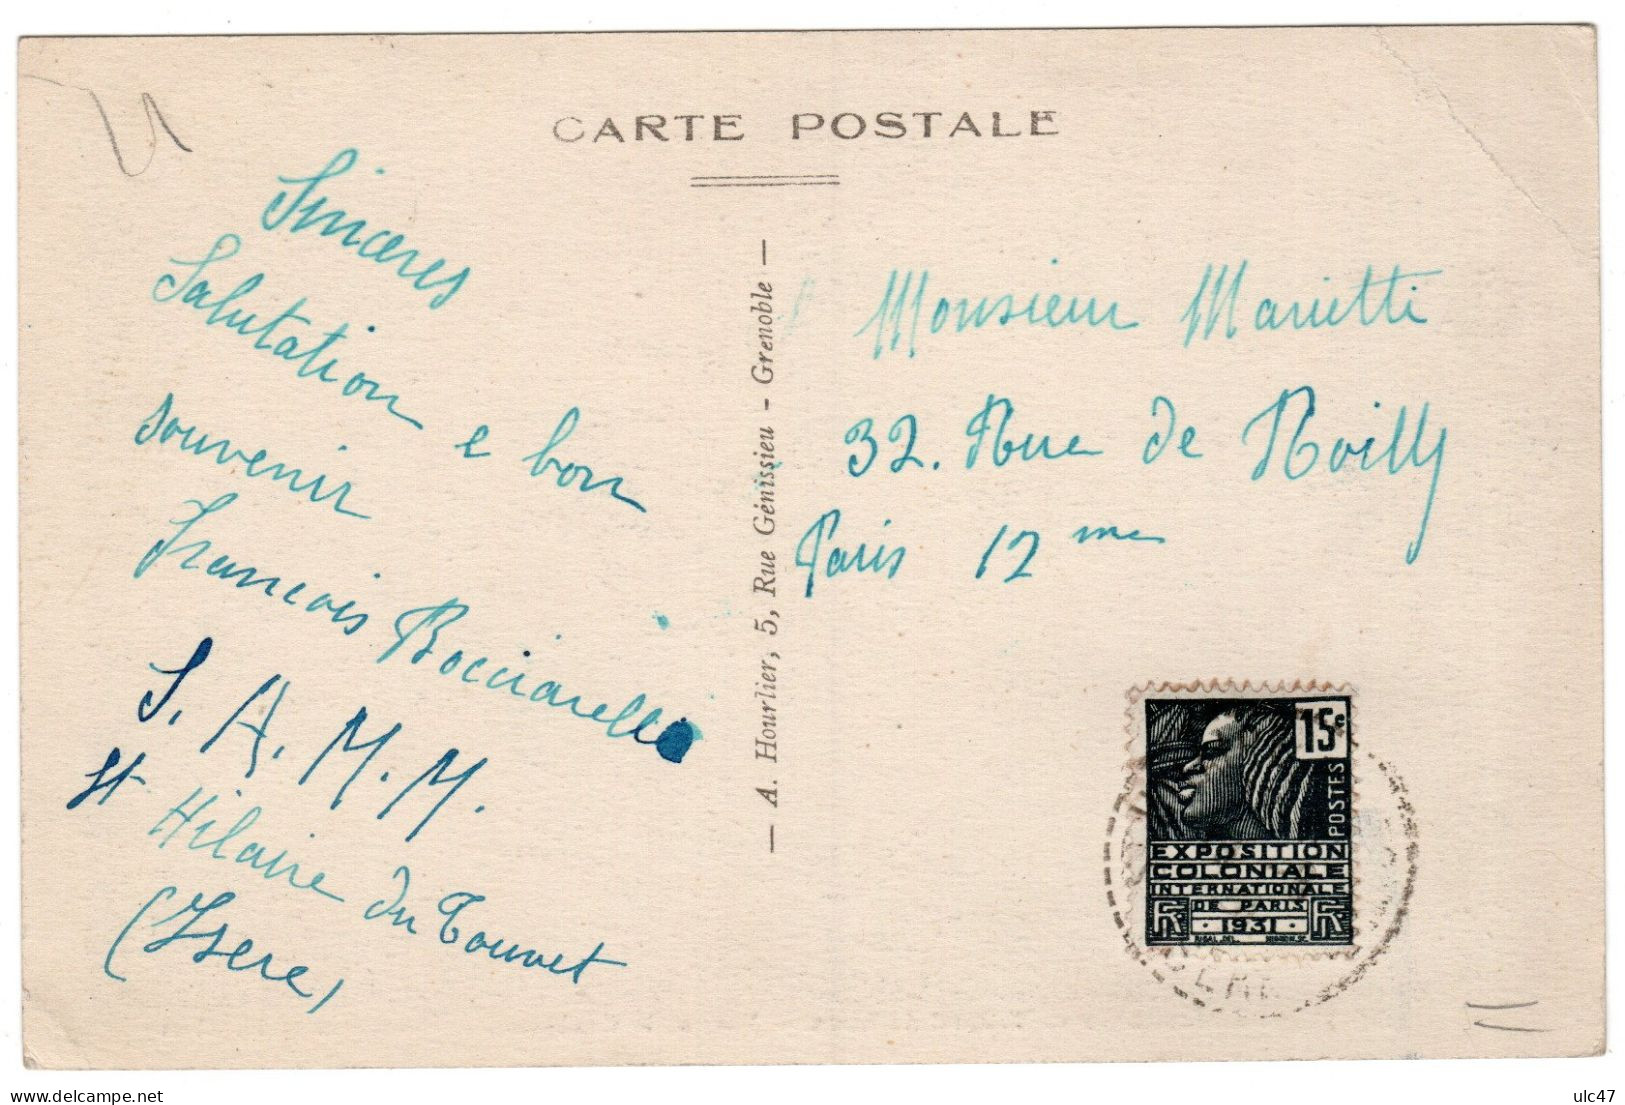 CARTE POSTALE
Sinceres
Salutation e bon
souvenir
Francois Bocciarelli
S. A. M. M.
St Hilaire du Touvet
(Isere)
— A. Hourlier, 5, Rue Génissieu - Grenoble —
Monsieur Marietti
32. Rue de Roilly
Paris 12 me
15c
POSTES
EXPOSITION
COLONIALE
INTERNATIONALE
DE PARIS
RF · 1931 · RF
delcampe.net
ulc47